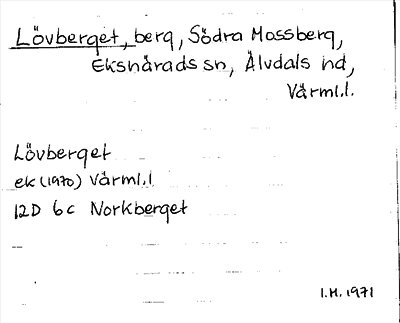 Lövberget, berg, Södra Mossberg,
Eksnärads sn, Älvdals hd,
Värml.l.
Lövberget
ek (1970) Värml.l
12D 6c Norkberget
I.H. 1971